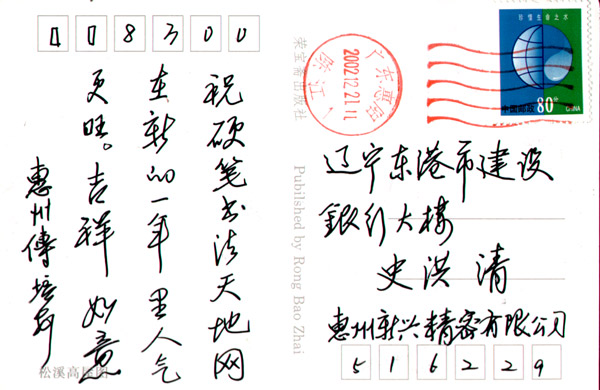 118300
祝硬笔书法天地网
在新的一年里人气
更旺。吉祥如意
惠州傅培
松溪高
荣宝斋出版社
Published by Rong Bao Zhai
广东惠阳
2002.12.21.11
珍惜生命之水
中国邮政 80分 CHINA
辽宁东港市建设
銀行大楼
史洪清
惠州新兴精密有限公司
516229